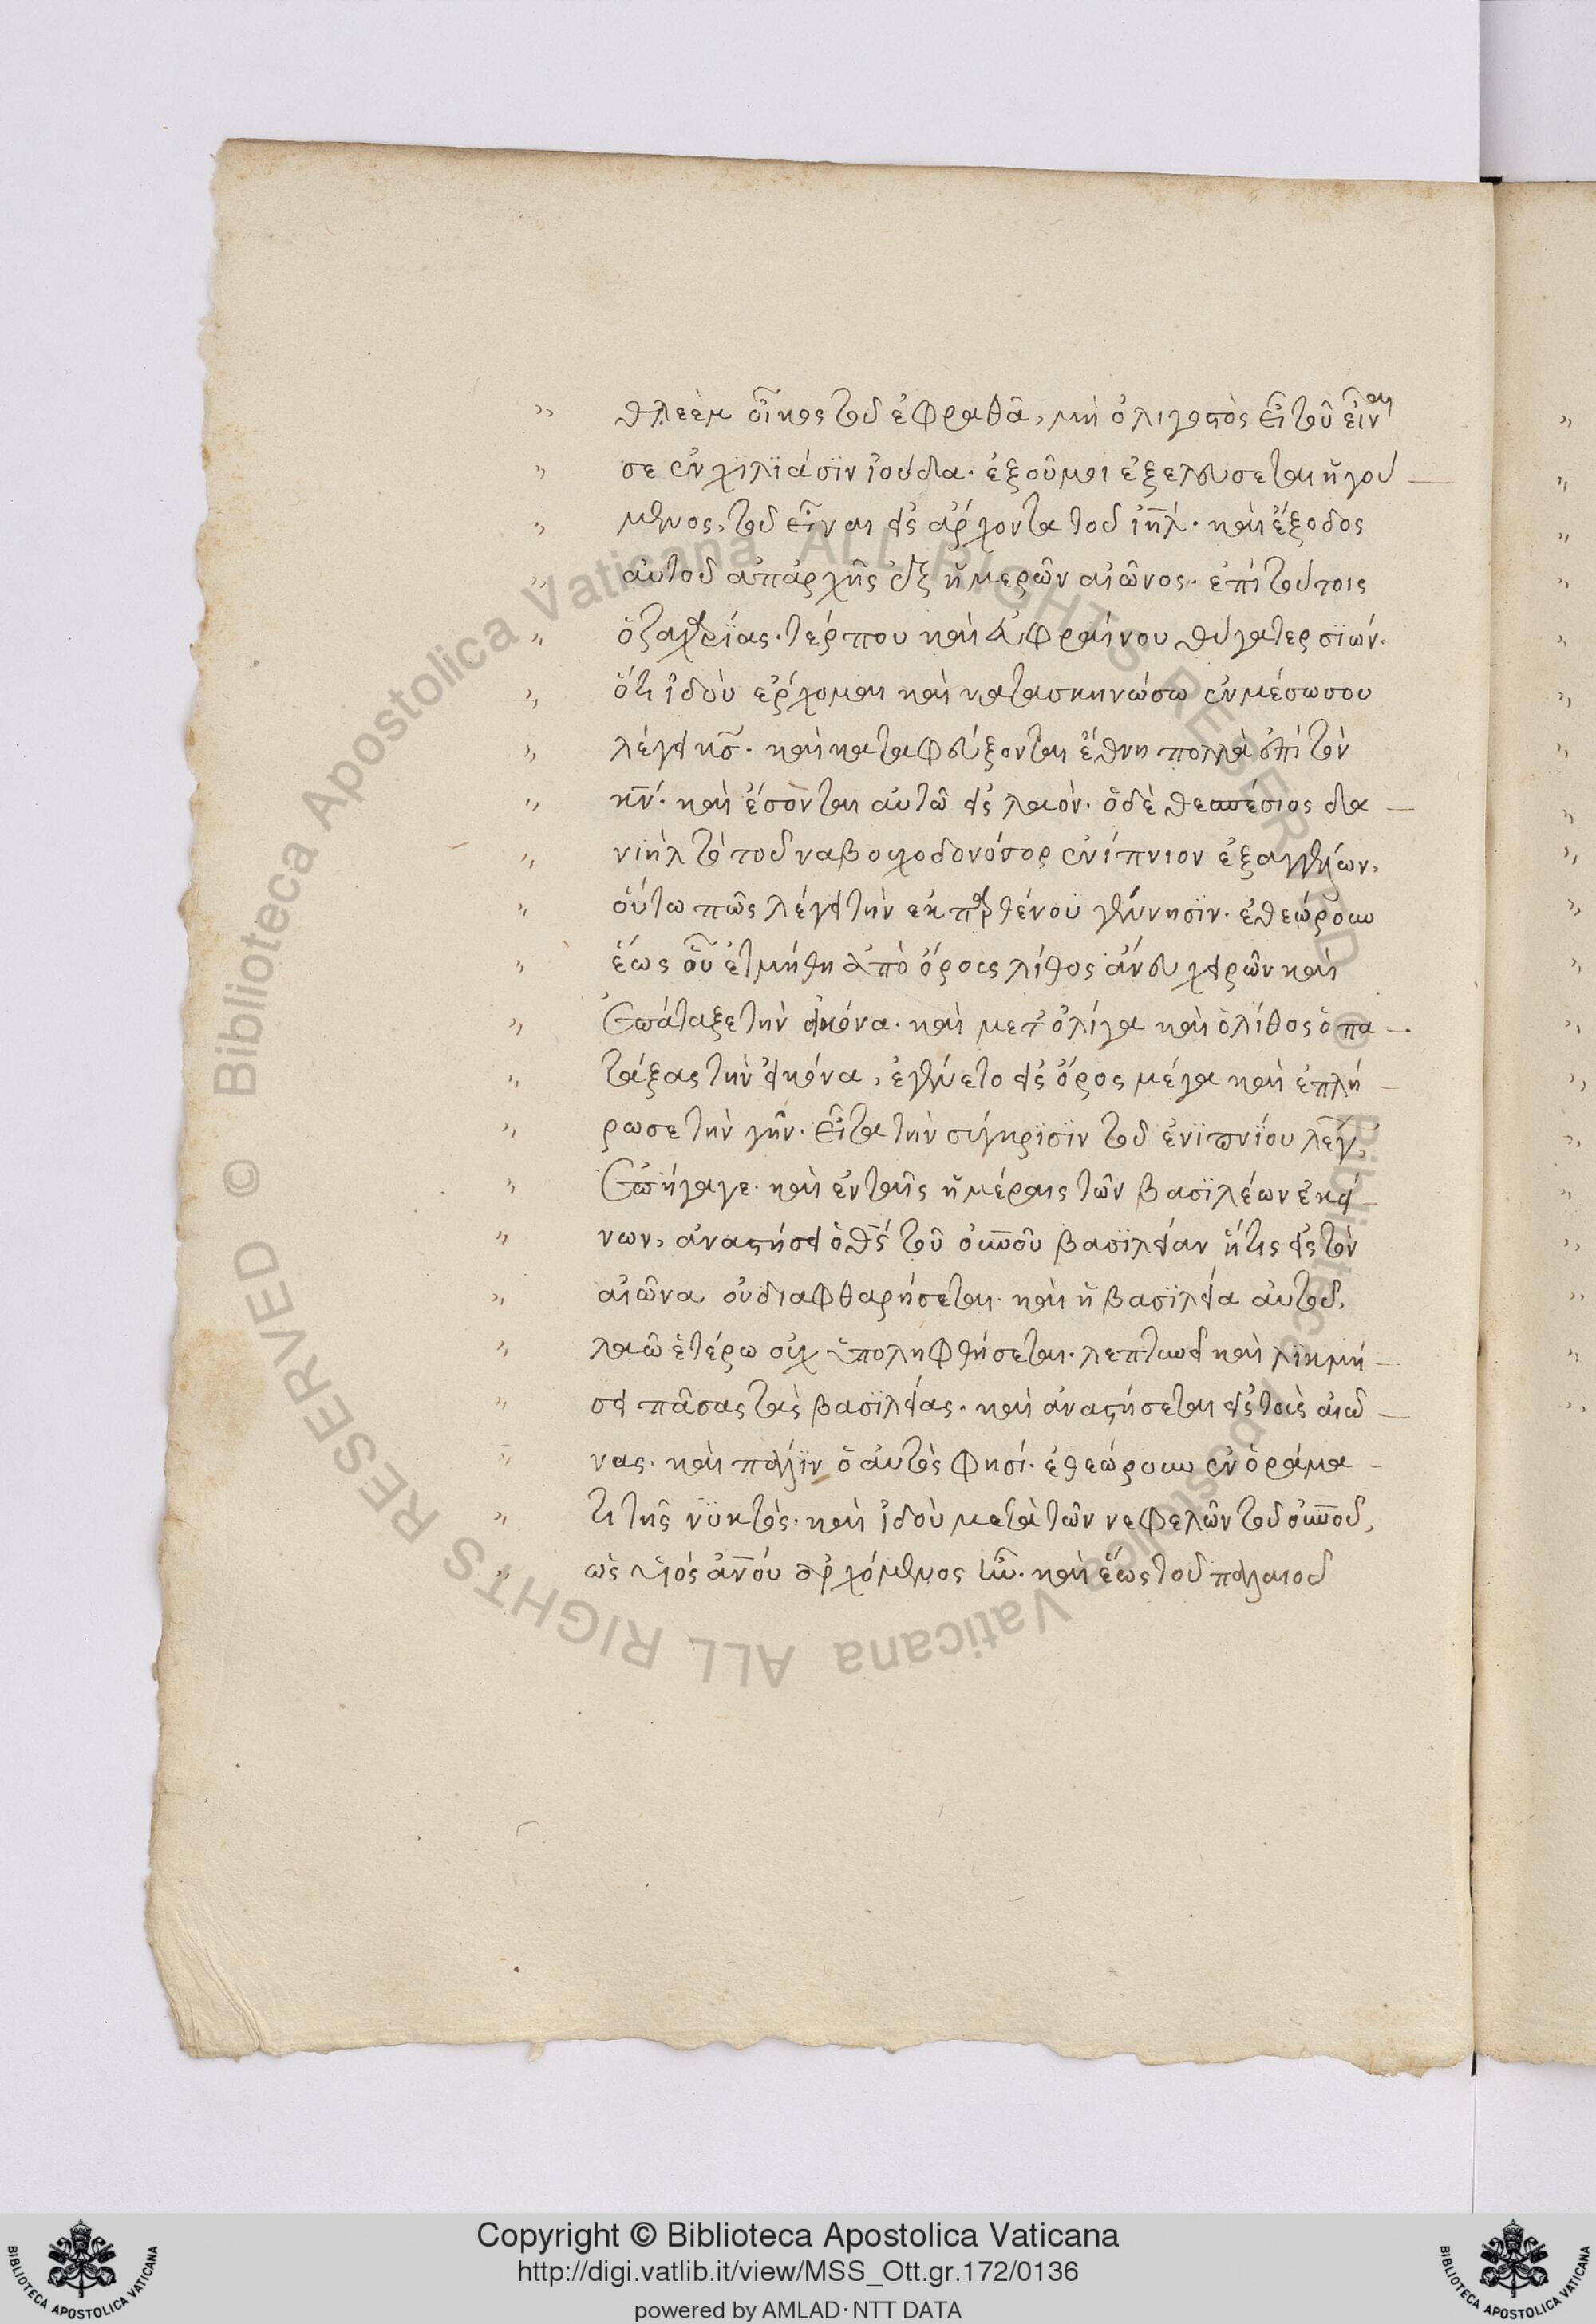 θλεὲμ οἶκος τοῦ ἐφραθᾶ, μὴ ὀλιγοστὸς εἶ τοῦ εἶναι
σε ἐν χϊλϊάσϊν ἰούδα· ἐξοῦ μοι ἐξελεύσεται ἡγού
μενος, τοῦ εἶναι εἰς ἄρχοντα τοῦ ἰηλ· καὶ ἔξοδος
αὐτοῦ ἀπἀρχῆς ἐξ ἡμερῶν αἰῶνος· ἐπὶ τούτοις
ὁ ζαχαρίας· τέρπου καὶ εὐφραίνου θύγατερ σϊών·
ὅτι ἰδοὺ ἔρχομαι καὶ κατασκηνώσω ἐν μέσω σου
λέγει κς· καὶ καταφεύξονται ἔθνη πολλὰ ἐπὶ τὸν
κν· καὶ ἔσονται αὐτῶ εἰς λαόν· ὁ δὲ θεσπέσιος δα
νϊὴλ τὸ τοῦ ναβουχοδονόσορ ἐνύπνιον ἐξαγγέλων,
οὕτω πως λέγει τὴν ἐκ παρθένου γέννησϊν· ἐθεώρουν
ἕως οὗ ἐτμήθη ἀπὸ ὄρους λίθος ἄνευ χειρῶν καὶ
ἐπάταξε τὴν εἰκόνα· καὶ μετ' ὀλίγα καὶ ὁ λίθος ὁ πα
τάξας τὴν εἰκόνα, ἐγένετο εἰς ὄρος μέγα καὶ ἐπλή
ρωσε τὴν γῆν· εἶτα τὴν σύγκρϊσϊν τοῦ ἐνϋπνΐου λέγων,
ἐπήγαγε· καὶ ἐν ταῖς ἡμέραις τῶν βασϊλέων ἐκεί
νων, ἀναστήσει ὁ θς τοῦ οὐνοῦ βασϊλείαν ἥτις εἰς τὸν
αἰῶνα οὐ διαφθαρήσεται· καὶ ἡ βασϊλεία αὐτοῦ,
λαῶ ἑτέρω οὐχ ὑποληφθήσεται· λεπτυνεῖ καὶ λικμή
σει πάσας τὰς βασϊλείας· καὶ ἀναστήσεται εἰς τοὺς αἰῶ
νας· καὶ πάλϊν ὁ αὐτὸς φησί· ἐθεώρουν ἐν ὁράμα
τι τῆς νϋκτὸς· καὶ ἰδοὺ μετὰ τῶν νεφελῶν τοῦ οὐνοῦ,
ὡς υἱὸς ἀνοῦ ἐρχόμενος ἦν· καὶ ἕως τοῦ παλαιοῦ
Copyright © Biblioteca Apostolica Vaticana
http://digi.vatlib.it/view/MSS_Ott.gr.172/0136
powered by AMLAD·NTT DATA
BIBLIOTECA APOSTOLICA VATICANA
BIBLIOTECA APOSTOLICA VATICANA
© Biblioteca Apostolica Vaticana ALL RIGHTS RESERVED © Biblioteca Apostolica Vaticana ALL RIGHTS RESERVED